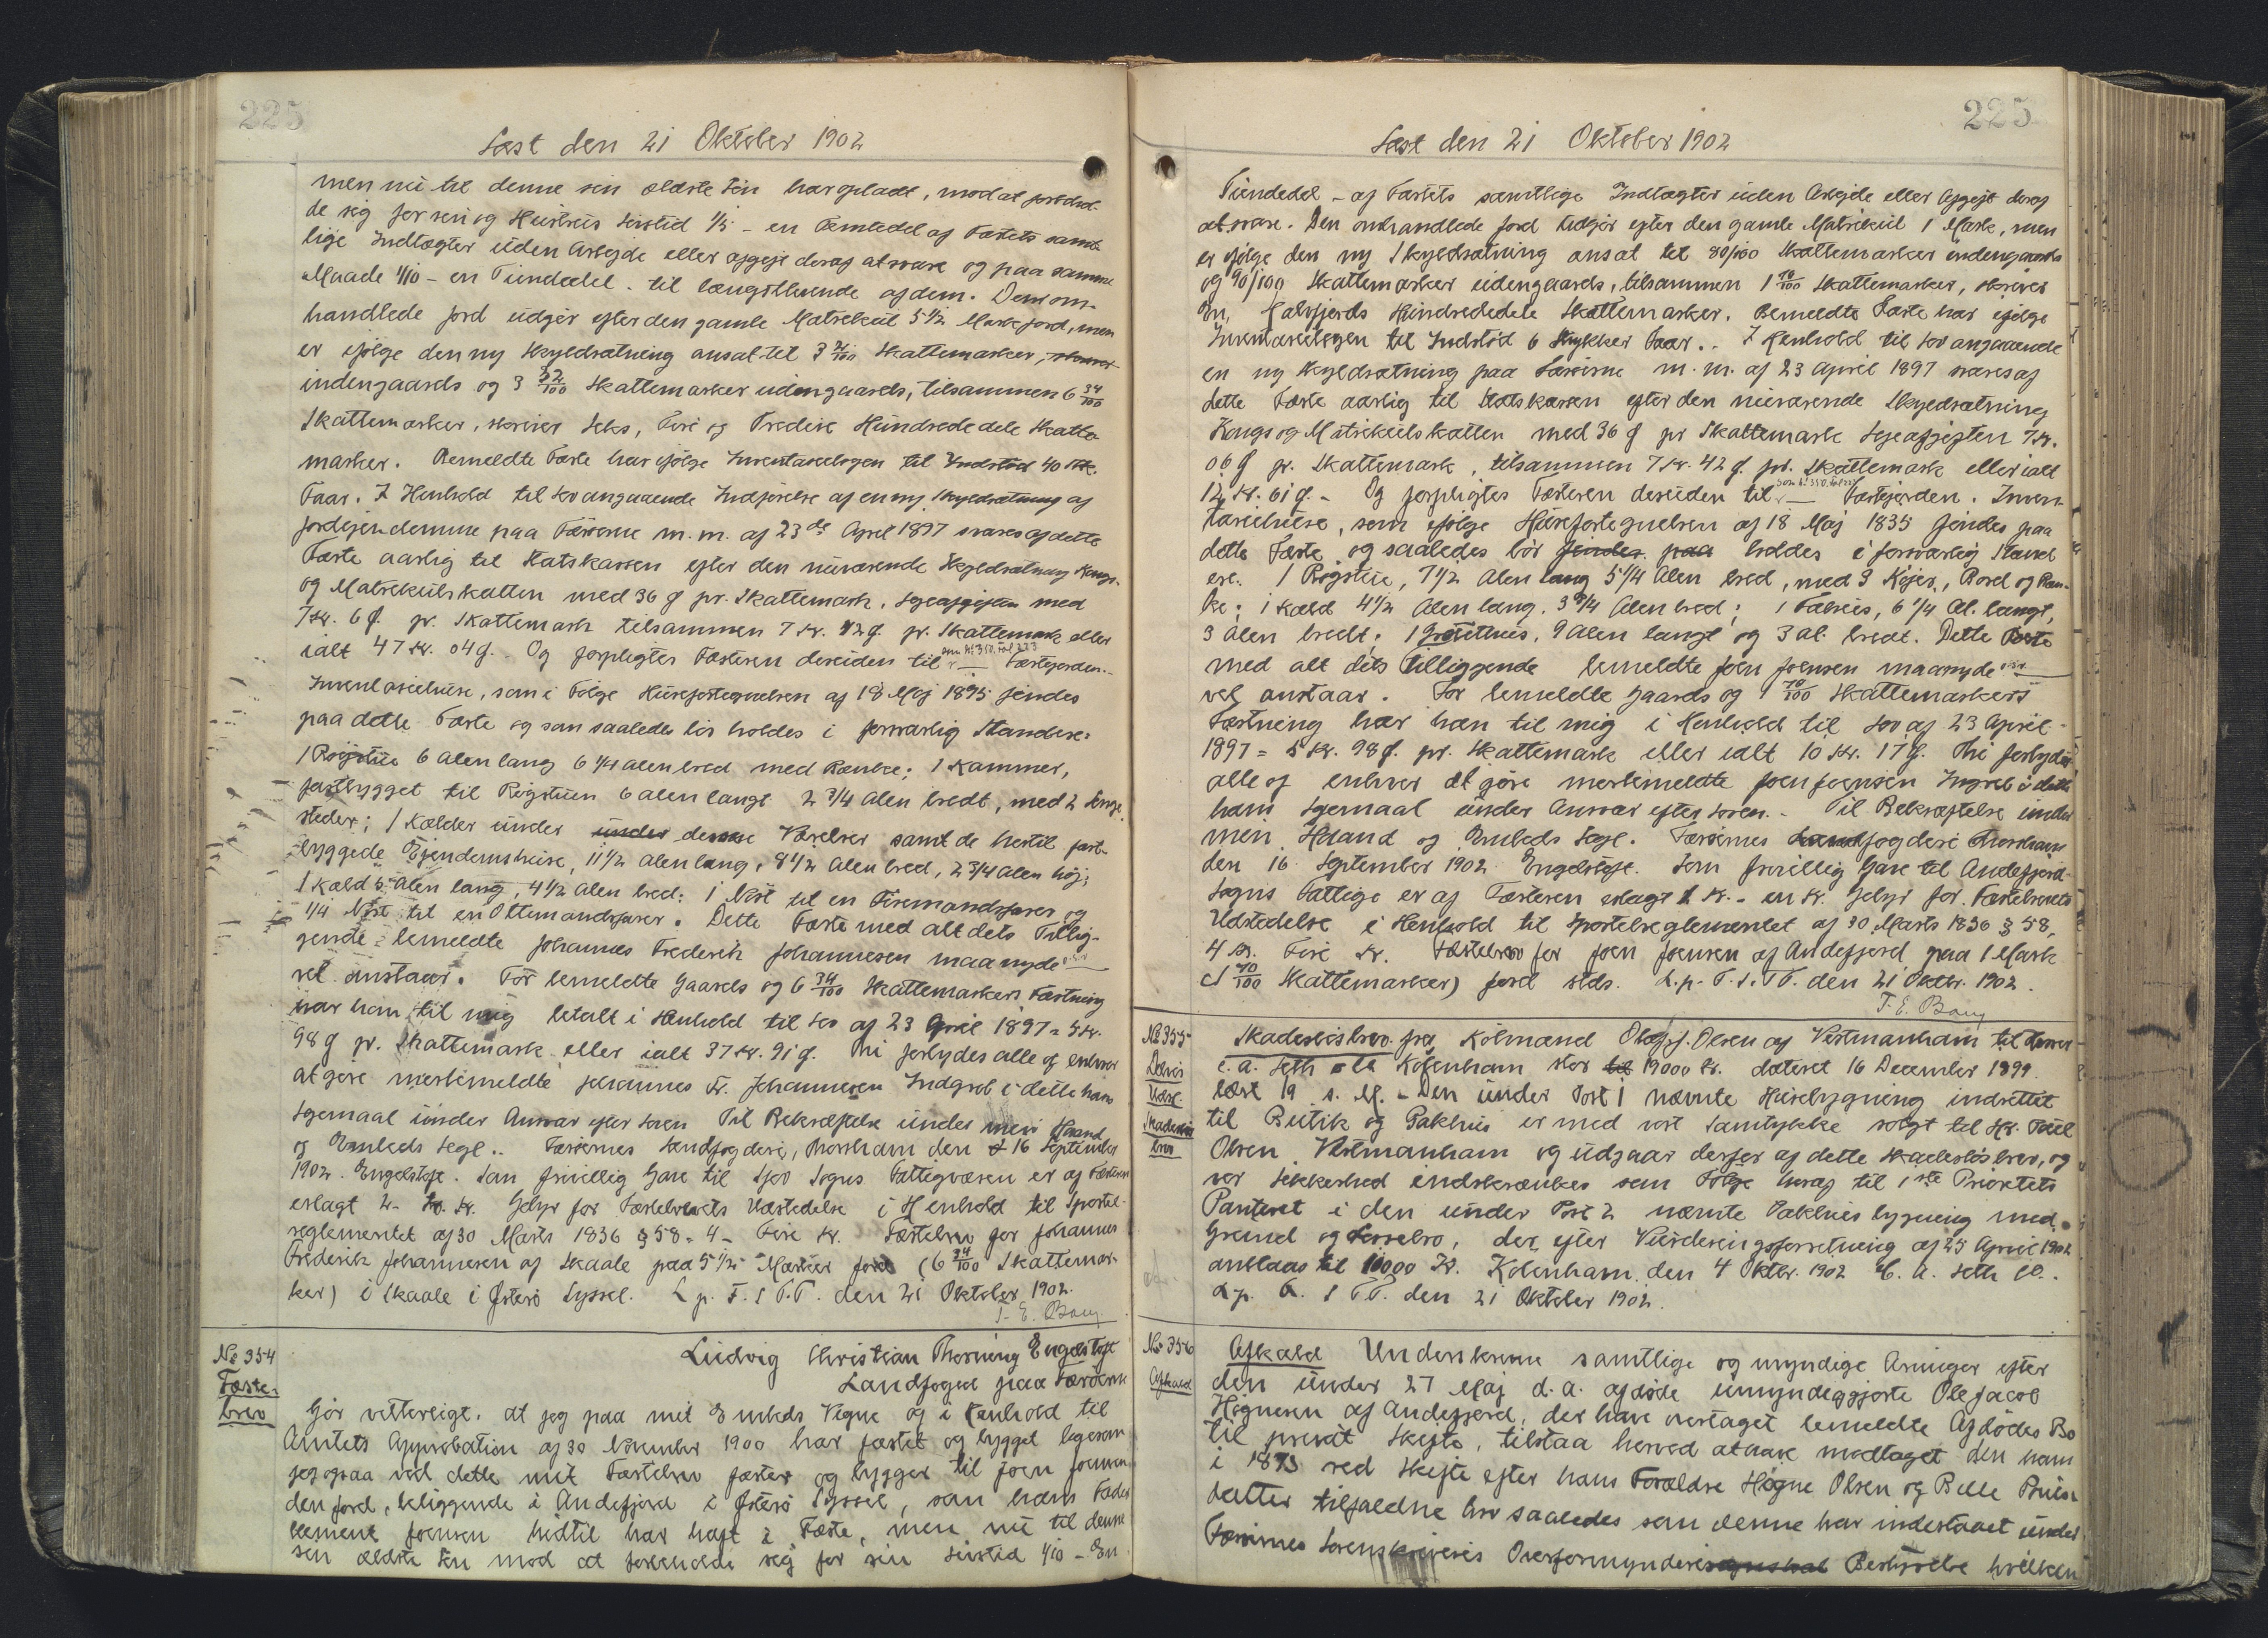 225
Læst den 21 Oktober 1902
men nu til denne sin ældste Søn har opladt, mod at forbehol-
de sig for sin og Hustrus Livstid 1/5 - en Femtedel af Fæstets samt-
lige Indtægter uden Arbejde eller Afgift deraf at svare og paa samme
Maade 1/10 - en Tiendedel - til længstlevende af dem. Den om-
handlede Jord udgør efter den gamle Matrikul 5 1/2 Mark Jord, men
er ifølge den ny Skyldsætning ansat til 3 2/100 Skattemarker, skriver
indengaards og 3 32/100 Skattemarker udengaards, tilsammen 6 34/100
Skattemarker, skriver Seks, Fire og Tredive Hundrededele Skatte-
marker. Bemeldte Fæste har ifølge Inventarielogen til Indstød 40 Stk.
Faar. I Henhold til Lov angaaende Indførelse af en ny Skyldsætning af
Jordejendomme paa Færøerne m. m. af 23de April 1897 svares af dette
Fæste aarlig til Statskassen efter den nuværende Skyldsætning Kongs-
og Matrikulskatten med 36 Ø pr. Skattemark, Lejeafgiften med
7 Kr. 6 Ø. pr. Skattemark tilsammen 7 Kr. 42 Ø. pr. Skattemark eller
ialt 47 Kr. 04 Ø. Og forpligtes Fæsteren desuden til som No 350, fol 223 Fæstejorden.-
Inventariehuse, som i Følge Husefortegnelsen af 18 Maj 1835 findes
paa dette Fæste og som saaledes bør holdes i forsvarlig Stand ere:
1 Røgstue 6 Alen lang 6 1/4 Alen bred med Bænke; 1 Kammer,
fastbygget til Røgstuen 6 Alen langt 2 3/4 Alen bredt, med 2 Senge-
steder; 1 Kælder under under denne Værelser samt de hertil fast-
byggede Ejendomshuse, 11 1/2 Alen lang, 8 1/2 Alen bred, 2 3/4 Alen høj;
1 Kald 6 Alen lang, 4 1/2 Alen bred; 1 Nøst til en Firemandsfarer og
1/4 Nøst til en Ottemandsfarer. Dette Fæste med alt dets Tillig-
gende bemeldte Johannes Frederik Johannesen maa nyde
vel anstaar. For bemeldte Gaards og 6 34/100 Skattemarkers Fæstning
har han til mig betalt i Henhold til Lov af 23 April 1897 = 5 Kr.
98 Ø pr. Skattemark eller ialt 37 Kr. 91 Ø. Thi forbydes alle og enhver
at gøre mestbemeldte Johannes Fr. Johannesen Indgreb i dette hans
Lejemaal under Ansvar efter Loven Til Bekræftelse under min Haand
og Embeds Segl.. Færøernes Landfogderi, Thorshavn den 16 September
1902. Engelstoft. Som frivillig Gave til Sjov Sogns Fattigvæsen er af Fæsteren
erlagt 2 - to Kr. Gebyr for Fæstebrevets Udstedelse i Henhold til Sportel-
reglementet af 30 Marts 1836 § 58 - 4 - Fire Kr. Fæstebrev for Johannes
Frederik Johannesen af Skaale paa 5 1/2 Marker Jord (6 34/100 Skattemar-
ker) i Skaale i Østerø Syssel. L. p. F. S. T. T. den 21 Oktober 1902.
T. E. Bang
No 354
Fæste-
brev
Ludvig Christian Thorning Engelstoft
Landfoged paa Færøerne
Gør vitterligt, at jeg paa mit Embeds Vegne og i Henhold til
Amtets Approbation af 30 November 1900 har fæstet og bygget ligesom
jeg ogsaa ved dette mit Fæstebrev fæster og bygger til Joen Joensen
den Jord, beliggende i Andefjord i Østerø Syssel, som hans Fader
Clement Joensen hidtil har haft i Fæste, men nu til denne
sin ældste Søn mod at forbeholde sig for sin Livstid 1/10 - En
225
Læst den 21 Oktober 1902
Tiendedel - af Fæstets samtlige Indtægter uden Arbejde eller Afgift deraf
at svare. Den omhandlede Jord udgør efter den gamle Matrikul 1 Mark, men
er ifølge den ny Skyldsætning ansat til 80/100 Skattemarker indengaards
og 90/100 Skattemarker udengaards, tilsammen 1 70/100 Skattemarker, skriver
En, Halvfjerds Hundrededele Skattemarker. Bemeldte Fæste har ifølge
Inventarielogen til Indstød 6 Stykker Faar.. I Henhold til Lov angaaende
en ny Skyldsætning paa Færøerne m. m. af 23 April 1897 svares af
dette Fæste aarlig til Statskassen efter den nuværende Skyldsætning
Kongs og Matrikulskatten med 36 Ø pr Skattemark Lejeafgiften 7 Kr.
06 Ø pr. Skattemark, tilsammen 7 Kr. 42 Ø. pr. Skattemark eller ialt
12 Kr. 61 Ø. - Og forpligtes Fæsteren desuden til som No 350, fol 223 Fæstejorden. Inven-
tariehuse, som ifølge Husefortegnelsen af 18 Maj 1835 findes paa
dette Fæste og saaledes bør findes paa holdes i forsvarlig Stand
ere: 1 Røgstue, 7 1/2 Alen lang 5 1/4 Alen bred, med 3 Køjer, Bord og Bæn-
ke; 1 Kald 4 1/2 Alen lang, 3 3/4 Alen bred; 1 Fæhus, 6 1/4 Al. langt,
3 Alen bredt; 1 Grøthus, 9 Alen langt og 3 Al. bredt. Dette Fæste
med alt dets Tilliggende bemeldte Joen Joensen maa nyde
vel anstaar. For bemeldte Gaards og 1 70/100 Skattemarkers
Fæstning har han til mig i Henhold til Lov af 23 April
1897 = 5 Kr. 98 Ø. pr. Skattemark eller ialt 10 Kr. 17 Ø. Thi forbydes
alle og enhver at gøre mestbemeldte Joen Joensen Indgreb i dette
hans Lejemaal under Ansvar efter Loven. - Til Bekræftelse under
min Haand og Embeds Segl. Færøernes Landfogderi Thorshavn
den 16 September 1902 Engelstoft. Som frivillig Gave til Andefjord
Sogns Fattige er af Fæsteren erlagt 1 Kr. - en Kr. Gebyr for Fæstebrevets
Udstedelse i Henhold til Sportelreglementet af 30 Marts 1836 § 58,
4 Kr. Fire Kr. Fæstebrev for Joen Joensen af Andefjord paa 1 Mark
(1 70/100 Skattemarker) Jord stds. L. p. F. S. T. T. den 21 Oktbr. 1902.
T. E. Bang
No 355
Skadesløsbrev fra Købmand Olaf J. Olsen af Vestmanhavn til
C. A. Seth København stor til 19000 Kr. dateret 16 December 1899.
læst 19 s. M. - Den under Post 1 nævnte Husebygning indrettet
til Butik og Pakhus er med vort Samtykke solgt til Hr. Poul
Olsen Vestmanhavn og udgaar derfor af dette Skadesløsbrev, og
vor Sikkerhed indskrænkes som Følge heraf til 1ste Prioritets
Panteret i den under Post 2 nævnte Pakhusbygning med
Grund og Lossebro, der, efter Vurderingsforretning af 25 April 1902
anslaas til 10000 Kr. København, den 4 Oktbr. 1902 C. A. Seth
L. p. A. S T. T. den 21 Oktober 1902.
No 356
Afkald
Afkald Underskrevne samtlige og myndige Arvinger efter
den under 27 Maj d. A. afdøde umyndiggjorte Ole Jacob
Høgnesen af Andefjord, der have overtaget bemeldte Afdødes Bo
til privat Skifte, tilstaa herved at have modtaget den ham
i 1893 ved Skifte efter hans Forældre Høgne Olsen og Bille
datter tilfaldne Arv saaledes som denne har indestaaet under
Færøernes Sorenskriveris Overformynderis Bestyrelse hvilken